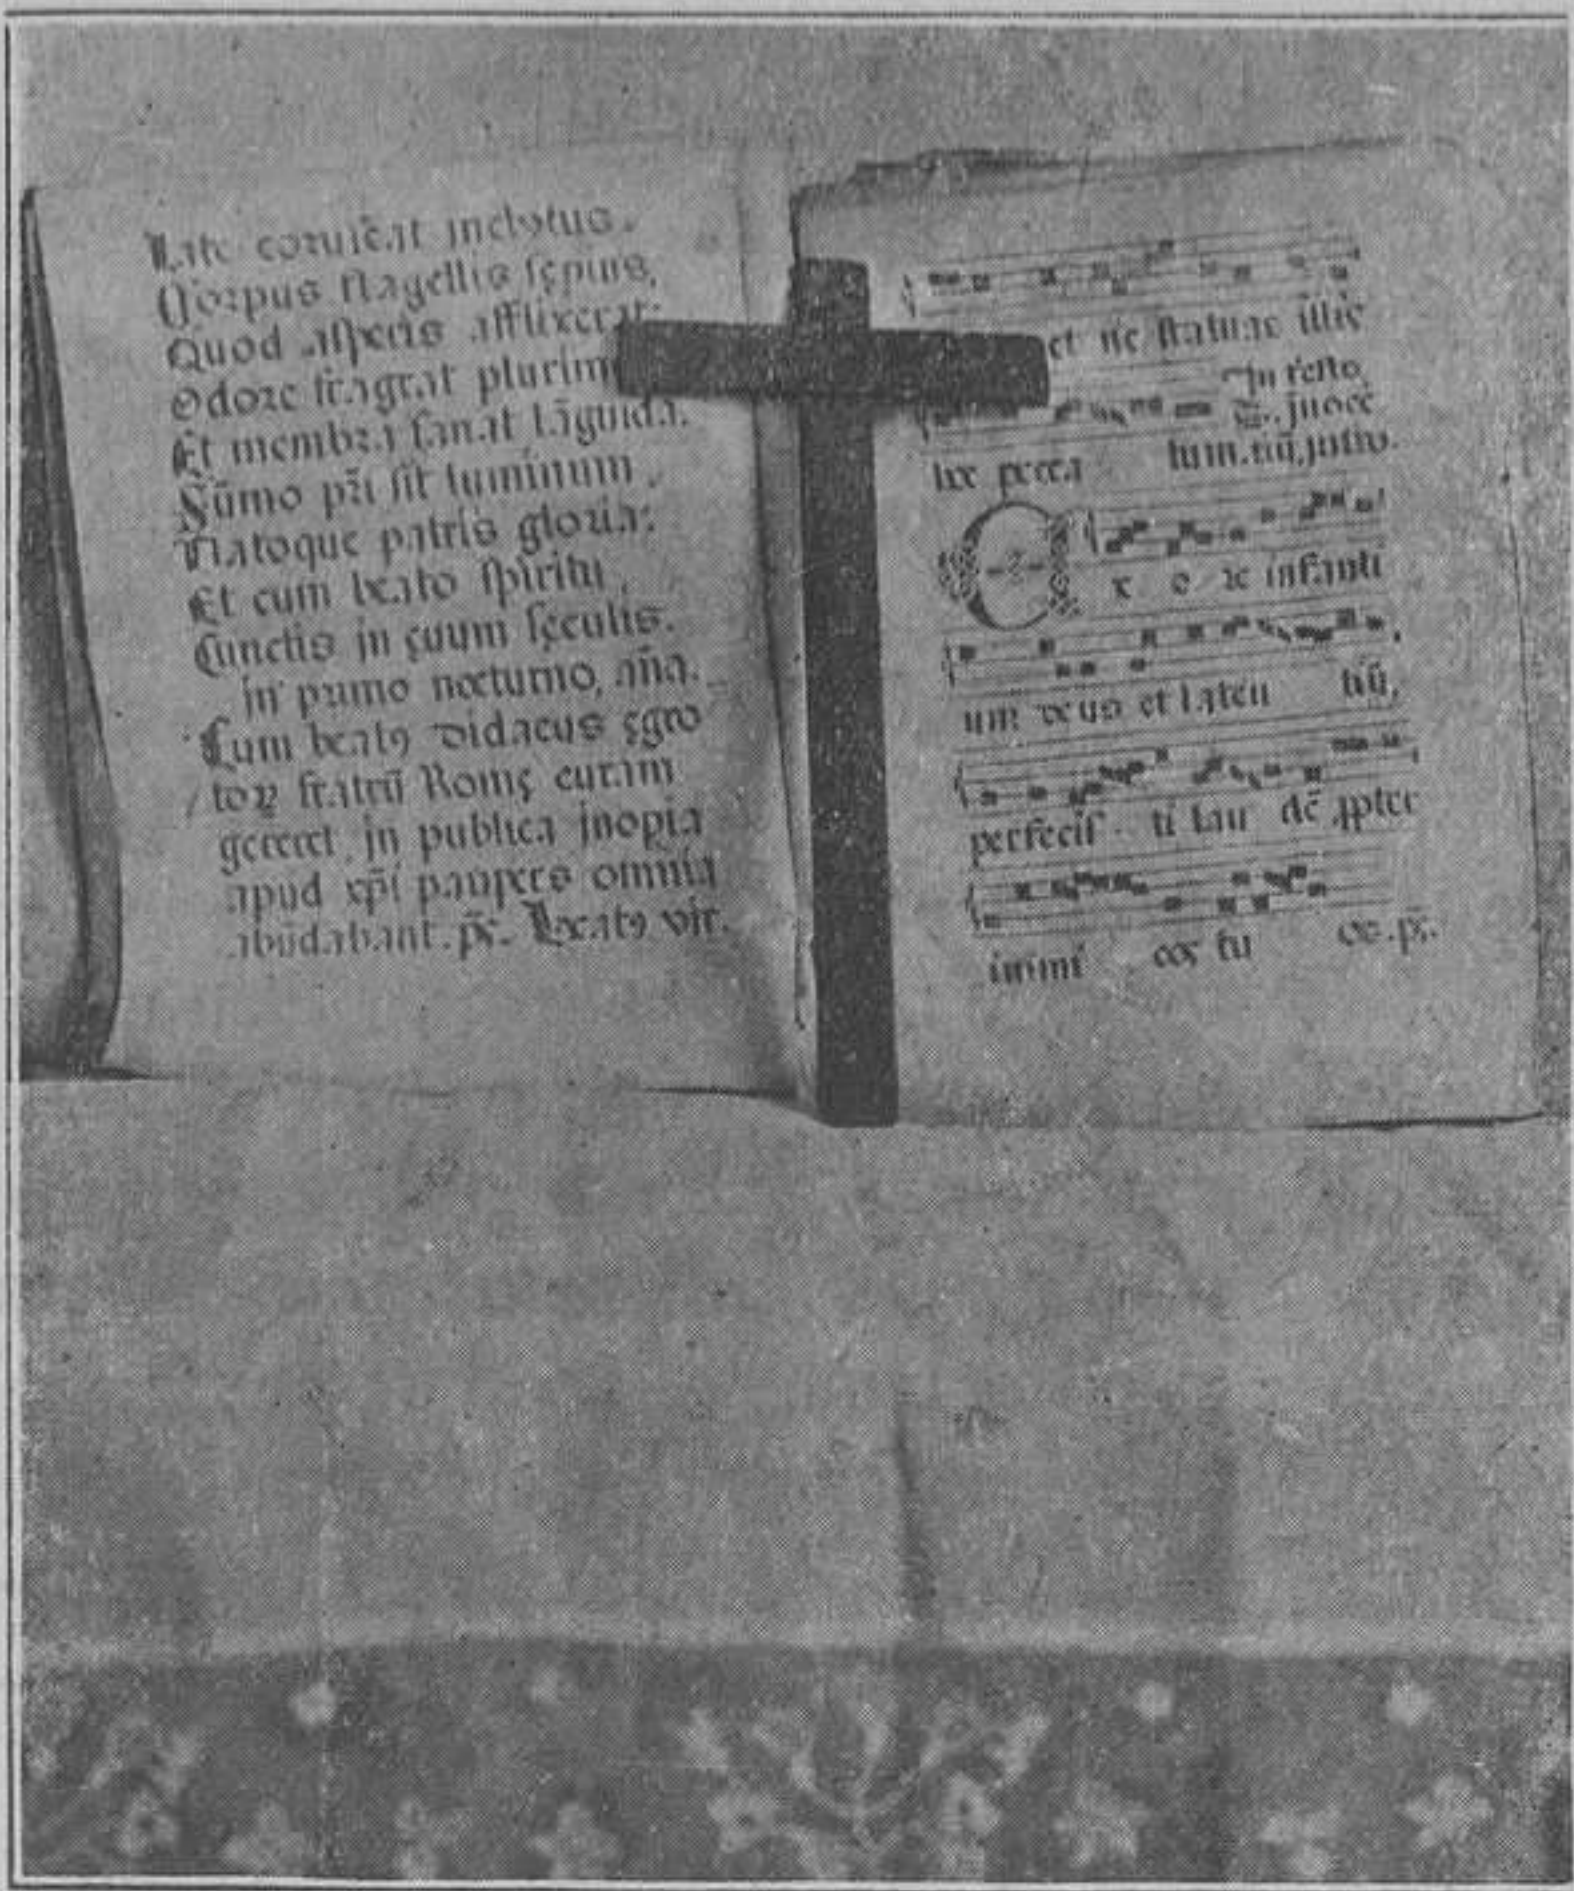 Late coruscat inclytus.
Corpus flagellis sępius,
Quod asperis afflixerat:
Odore fragrat plurim
Et membra sanat lāguida.
Sūmo pr̄i sit luminum,
Natoque patris gloria:
Et cum beato spiritu,
Cunctis in ęuum sęculis.
in primo nocturno, añа.
Cum beatꝯ didacus ęgro
toꝝ fratrū Romę curam
gereret, in publica inopia
apud xp̄i pauperes omnia
abūdabant. p̄s. Beatꝯ vir.
et ne statuas illis
In festo
hoc pecca tum. tiū, intro.
E x o re infanti
um deus et lacten tiū,
perfecis ti lau dē ꝓpter
inimi cos tu os. p̄s.